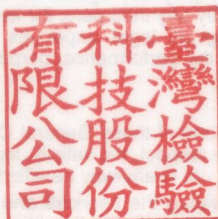 臺灣檢驗
科技股份
有限公司